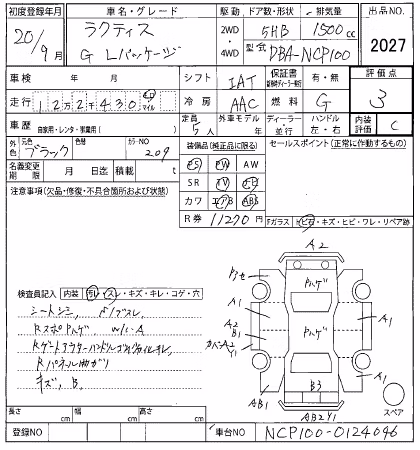 初度登録年月 車名・グレード 駆動 ドア数・形状 排気量 出品NO.
20/9月 ラクティス 2WD 5HB 1500cc 2027
G Lパッケージ 4WD 型式 DBA-NCP100
車検 年 月 シフト IAT 保証書 有・無 評価点
走行 12万2千430 キロ マイル 冷房 AAC 燃料 G 3
車歴 自家用・レンタ・事業用( ) 定員 5人 外車モデル 年 ディーラー・並行 ハンドル 左・右 内装評価 C
外色 元色 ブラック 色替 カラーNO 209 装備品(純正品に限る) セールスポイント(正常に作動するもの)
名義変更期限 月 日迄 積載 t PS PW AW
注意事項(欠品・修復・不具合箇所および状態) SR TV ナビ
カワ エアB ABS
R券 11270円 Fガラス ヒビ石・キズ・ヒビ・ワレ・リペア跡
A2
Pハゲ
A1
Pハゲ
A2
B1
A2
Y1
A1
B3
AB1
A1
AB2Y1
スペア
検査員記入 内装 汚レ・スレ・キズ・キレ・コゲ・穴
シートシミ、
RスポPハゲ
Rゲートアウターハンドル
Rパネル曲がり
キズ、B、
長さ cm 幅 cm 高さ cm
登録NO 車台NO NCP100-0124046